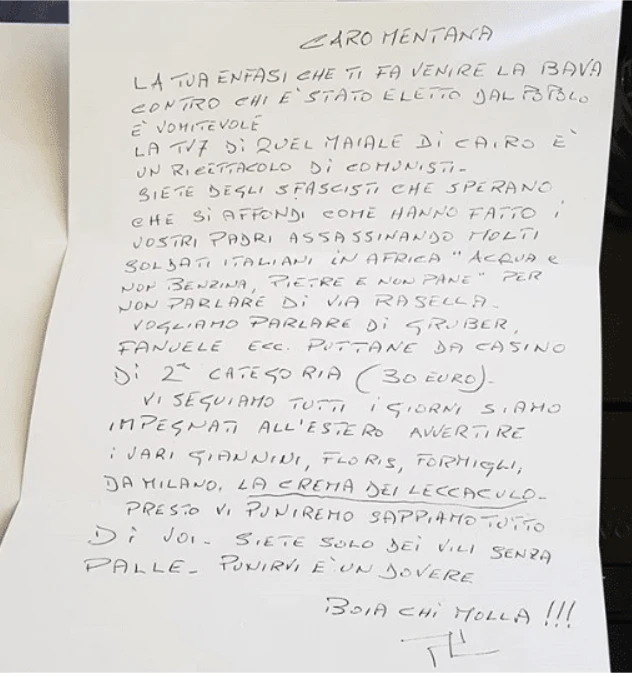 CARO MENTANA
LA TUA ENFASI CHE TI FA VENIRE LA BAVA
CONTRO CHI E' STATO ELETTO DAL POPOLO
È VOMITEVOLE
LA TV7 DI QUEL MAIALE DI CAIRO È
UN RICETTACOLO DI COMUNISTI-
SIETE DEGLI SFASCISTI CHE SPERANO
CHE SI AFFONDI COME HANNO FATTO I
VOSTRI PADRI ASSASSINANDO MOLTI
SOLDATI ITALIANI IN AFRICA "ACQUA E
NON BENZINA, PIETRE E NON PANE" PER
NON PARLARE DI VIA RASELLA-
VOGLIAMO PARLARE DI GRUBER,
FANUELE ECC. PUTTANE DA CASINO
DI 2ª CATEGORIA (30 EURO)-
VI SEGUIAMO TUTTI I GIORNI SIAMO
IMPEGNATI ALL'ESTERO AVVERTIRE
I VARI GIANNINI, FLORIS, FORMIGLI,
DA MILANO, LA CREMA DEI LECCACULO-
PRESTO VI PUNIREMO SAPPIAMO TUTTO
DI VOI- SIETE SOLO DEI VILI SENZA
PALLE- PUNIRVI E' UN DOVERE
BOIA CHI MOLLA !!!